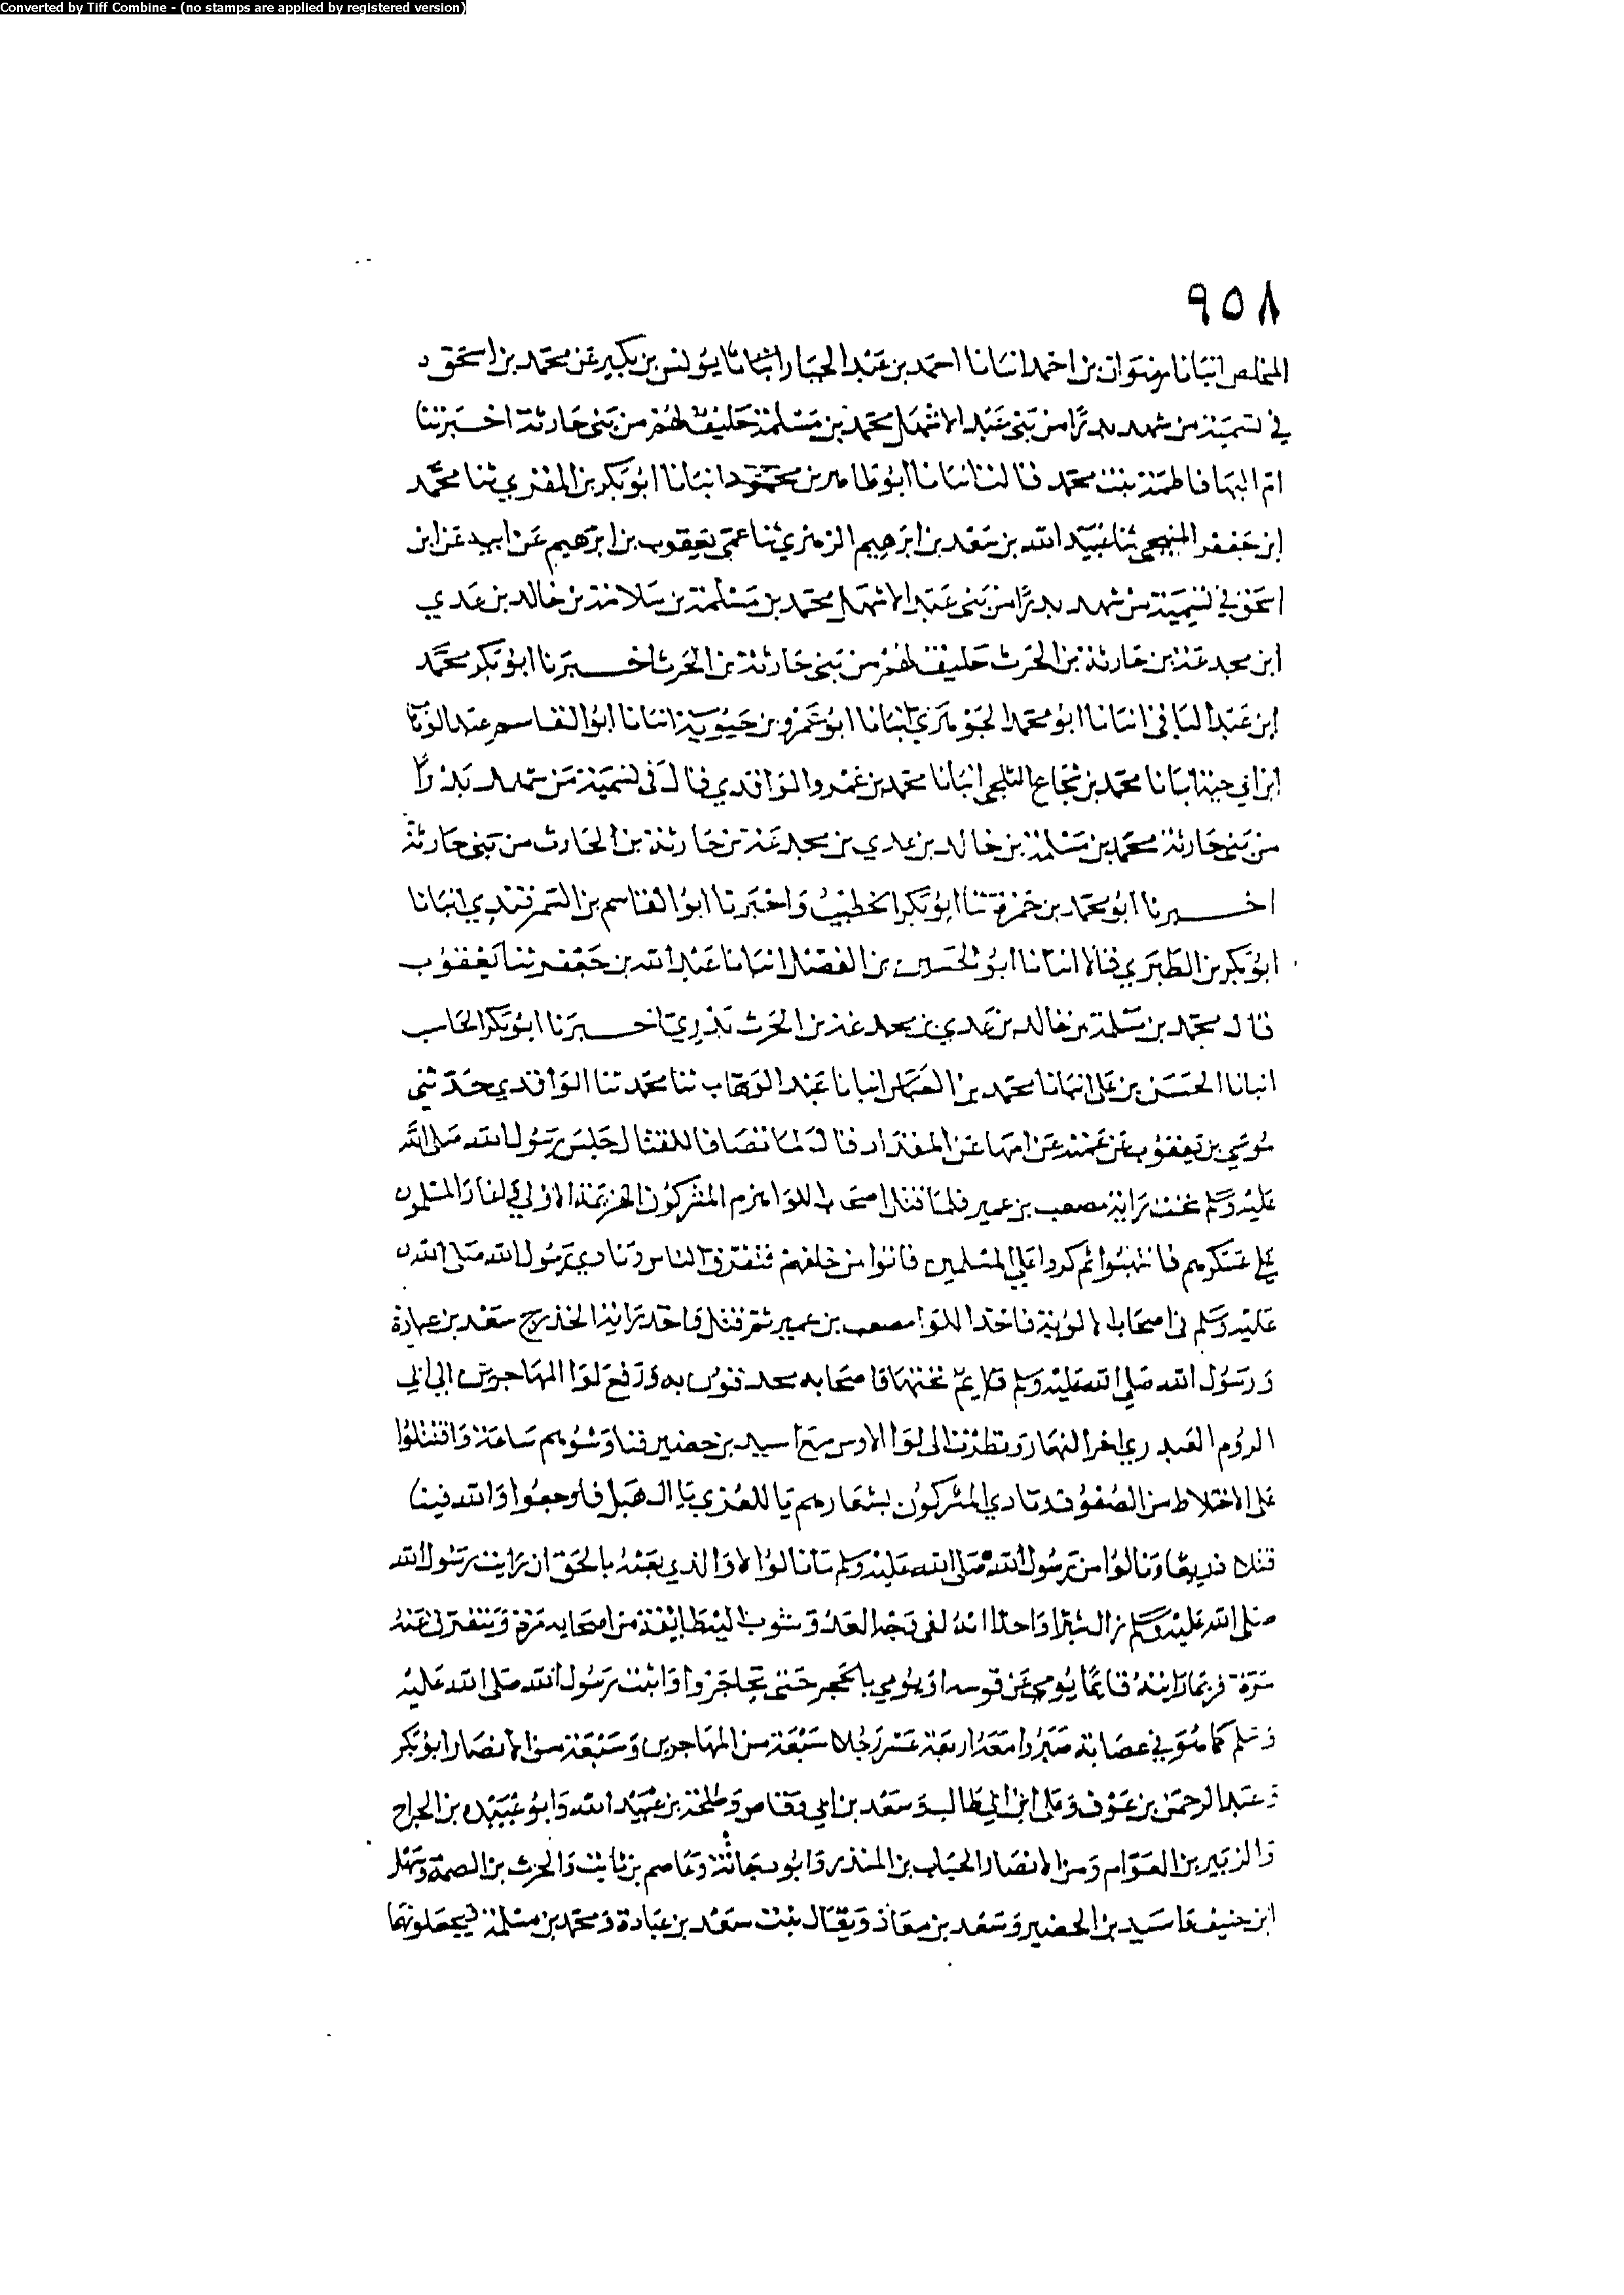 Converted by Tiff Combine - (no stamps are applied by registered version)
٩٥٨
المخلص انبانا رضوان بن احمد انبانا احمد بن عبد الجبار انبانا يونس بن بكير عن محمد بن اسحق
في تسمية من شهد بدرا من بني عبد الاشهل محمد بن مسلمة حليف لهم من بني حارثة اخبرتنا
ام البها فاطمة بنت محمد قالت انبانا ابو طاهر بن محمود انبانا ابو بكر بن المقري ثنا محمد
ابن جعفر المنبجي ثنا عبيد الله بن سعد بن ابرهيم الزهري ثنا عمي يعقوب بن ابرهيم عن ابيه عن ابن
اسحق في تسمية من شهد بدرا من بني عبد الاشهل محمد بن مسلمة بن سلامة بن خالد بن عدي
ابن مجدعة بن حارثة بن الحرث حليف لهم من بني حارثة بن الحرث اخبرنا ابو بكر محمد
ابن عبد الباقي انبانا ابو محمد الجوهري انبانا ابو عمرو بن حيوية انبانا ابو القاسم عبد الوهاب
ابن ابي حية انبانا محمد بن شجاع الثلجي انبانا محمد بن عمرو الواقدي قال في تسمية من شهد بدرا
من بني حارثة محمد بن مسلمة بن خالد بن عدي بن مجدعة بن حارثة بن الحارث من بني حارثة
اخبرنا ابو محمد بن حمزة ثنا ابو بكر الخطيب واخبرنا ابو القاسم بن السمرقندي انبانا
ابو بكر بن الطبري قالا انبانا ابو الحسين بن الفضل انبانا عبد الله بن جعفر ثنا يعقوب
قال محمد بن مسلمة بن خالد بن عدي بن مجدعة بن الحرث بدري اخبرنا ابو بكر الحاسب
انبانا الحسن بن علي انبانا محمد بن العباس انبانا عبد الوهاب ثنا محمد ثنا الواقدي حدثني
موسي بن يعقوب عن عمته عن امها عن المقداد قال لما تصافا للقتال جلس رسول الله صلى الله
عليه وسلم تحت راية مصعب بن عمير فلما قتل اصحاب اللوا هزم المشركون الهزيمة الاولي واغار المسلمون
علي عسكرهم فانتهبوا ثم كروا علي المسلمين فاتوا من خلفهم فتفرق الناس ونادي رسول الله صلى الله
عليه وسلم في اصحاب الالوية فاخذ اللوا مصعب بن عمير ثم قتل واخذ راية الخزرج سعد بن عبادة
ورسول الله صلي الله عليه وسلم قايم تحتها واصحابه محدقون به ودفع لوا المهاجرين الي ابي
الروم العبدري اخر النهار ونظرت الى لوا الاوس مع اسيد بن حضير فناوشوهم ساعة واقتتلوا
على الاختلاط من الصفوف ونادي المشركون بشعارهم يا للعزي يا ال هبل فاوجعوا والله فينا
قتلا ذريعا ونالوا من رسول الله صلى الله عليه وسلم ما نالوا لا والذي بعثه بالحق ان رايت رسول الله
صلى الله عليه وسلم زال شبرا واحدا انه لفي وجه العدو تثوب اليه طايفة من اصحابه مرة ويتفرق عنه
مرة فربما رايته قايما يرمي عن قوسه او يرمي بالحجر حتى تحاجزوا وثبت رسول الله صلى الله عليه
وسلم كما هو في عصابة صبروا معه اربعة عشر رجلا سبعة من المهاجرين وسبعة من الانصار ابو بكر
وعبد الرحمن بن عوف وعلى ابن ابي طالب وسعد بن ابي وقاص وطلحة بن عبيد الله وابو عبيده بن الجراح
والزبير بن العوام ومن الانصار الحباب بن المنذر وابو دجانة وعاصم بن ثابت والحرث بن الصمة وسهل
ابن حنيف واسيد بن الحضير وسعد بن معاذ ويقال ثبت سعد بن عبادة ومحمد بن مسلمة فيجعلونهما